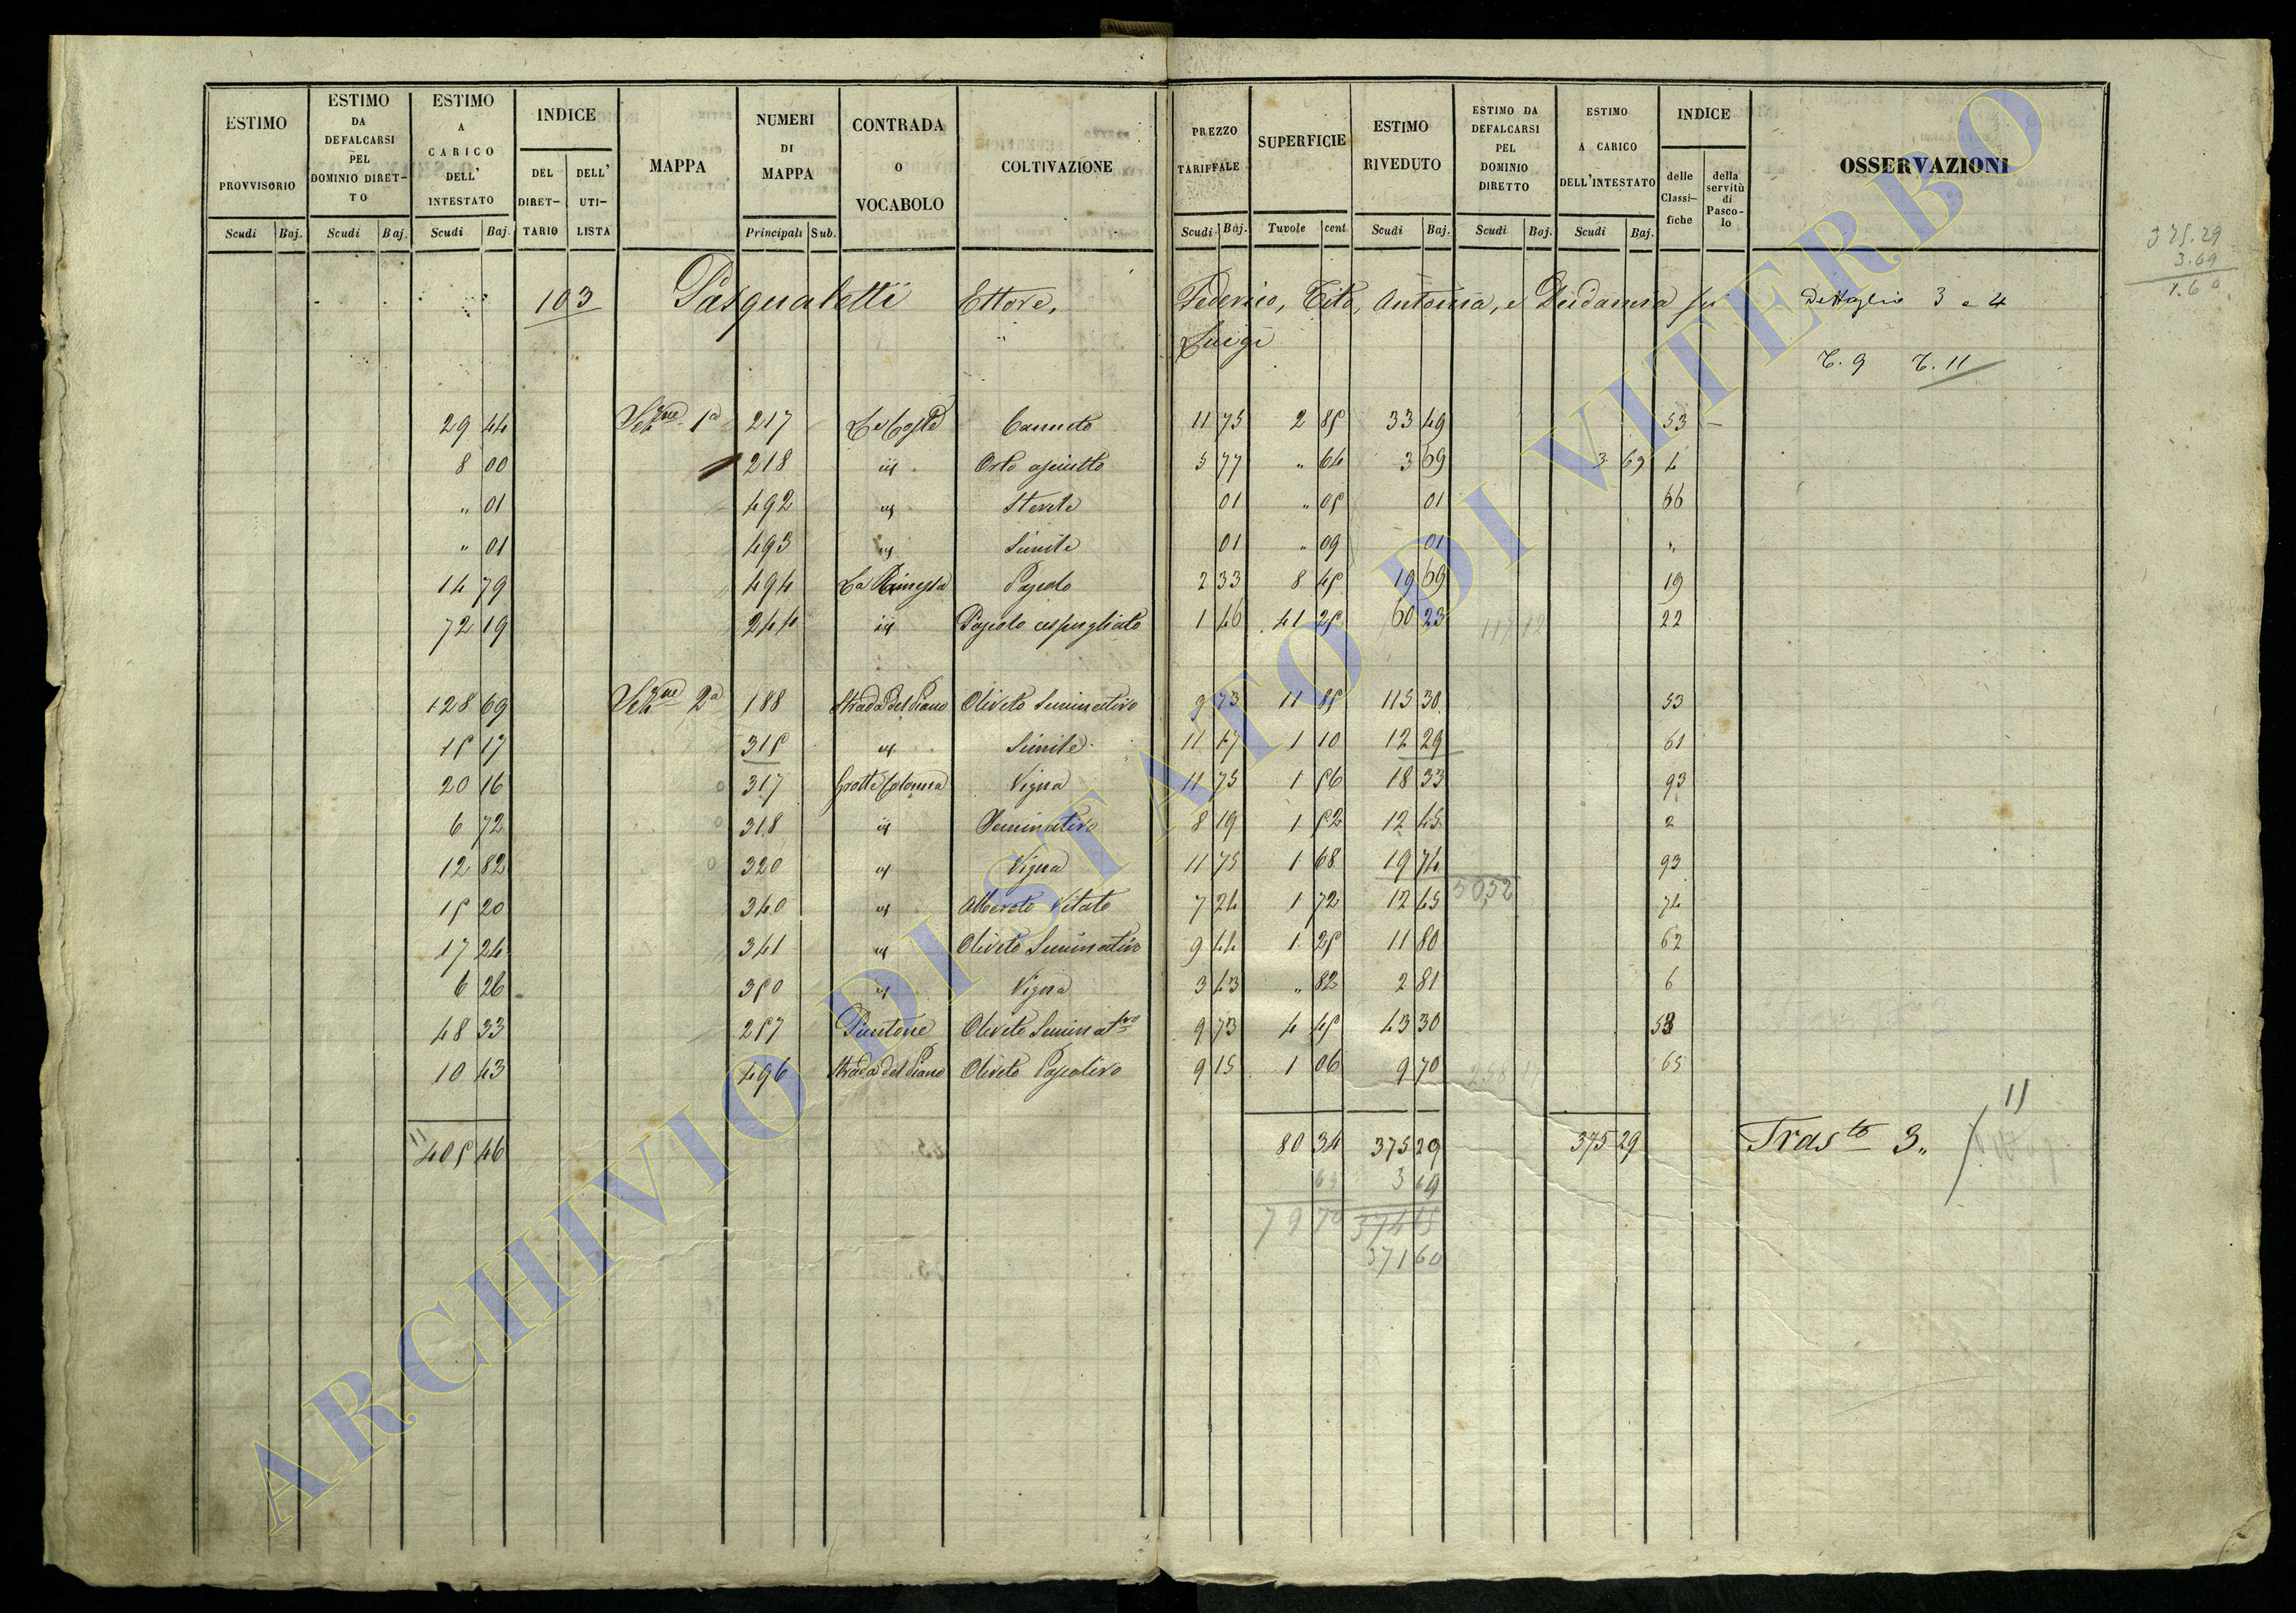 ESTIMO PROVVISORIO Scudi Baj.
ESTIMO DA DEFALCARSI PEL DOMINIO DIRET-TO Scudi Baj.
ESTIMO A CARICO DELL' INTESTATO Scudi Baj.
INDICE DEL DIRET-TARIO DELL' UTI-LISTA
MAPPA
NUMERI DI MAPPA Principali Sub.
CONTRADA O VOCABOLO
COLTIVAZIONE
PREZZO TARIFFALE Scudi Baj.
SUPERFICIE Tavole cent
ESTIMO RIVEDUTO Scudi Baj.
ESTIMO DA DEFALCARSI PEL DOMINIO DIRETTO Scudi Baj.
ESTIMO A CARICO DELL'INTESTATO Scudi Baj.
INDICE delle Classi-fiche della servitù di Pasco-lo
OSSERVAZIONI
375.29
3.69
1.60
103 Pasqualetti Ettore, Federico, Tito, Antonia, e Deidamia fu Dettaglio 3 e 4
Luigi
T. 9 T. 11
29 44 Sez.ne 1a 217 Le Coste Canneto 11 75 2 85 33 49 53
8 00 218 id Orto asciutto 5 77 " 64 3 69 3 69 4
" 01 492 id Sterile 01 " 05 01 66
" 01 493 id Simile 01 " 09 01 "
14 79 494 La Ginestra Pascolo 2 33 8 45 19 69 19
72 19 244 id Pascolo cespugliato 1 46 41 25 60 23 117 12 22
128 69 Sez.ne 2a 188 Strada del Piano Oliveto Seminativo 9 73 11 85 115 30 53
15 17 315 id Simile 11 17 1 10 12 29 61
20 16 317 Grotte Colonna Vigna 11 75 1 56 18 33 93
6 72 318 id Seminativo 8 19 1 52 12 45 2
12 82 320 id Vigna 11 75 1 68 19 74 93
5052
15 20 340 id Alberato Vitato 7 24 1 72 12 45 74
17 24 341 id Oliveto Seminativo 9 44 1 25 11 80 62
6 26 350 id Vigna 3 43 " 82 2 81 6
48 33 257 Piantone Oliveto Seminat.vo 9 73 4 45 43 30 53
10 43 496 Strada del Piano Oliveto Pascolivo 9 15 1 06 9 70 65
11
405 46 80 34 375 29 375 29 Tras.to 3.
3 69
79 70
371 60
ARCHIVIO DI STATO DI VITERBO